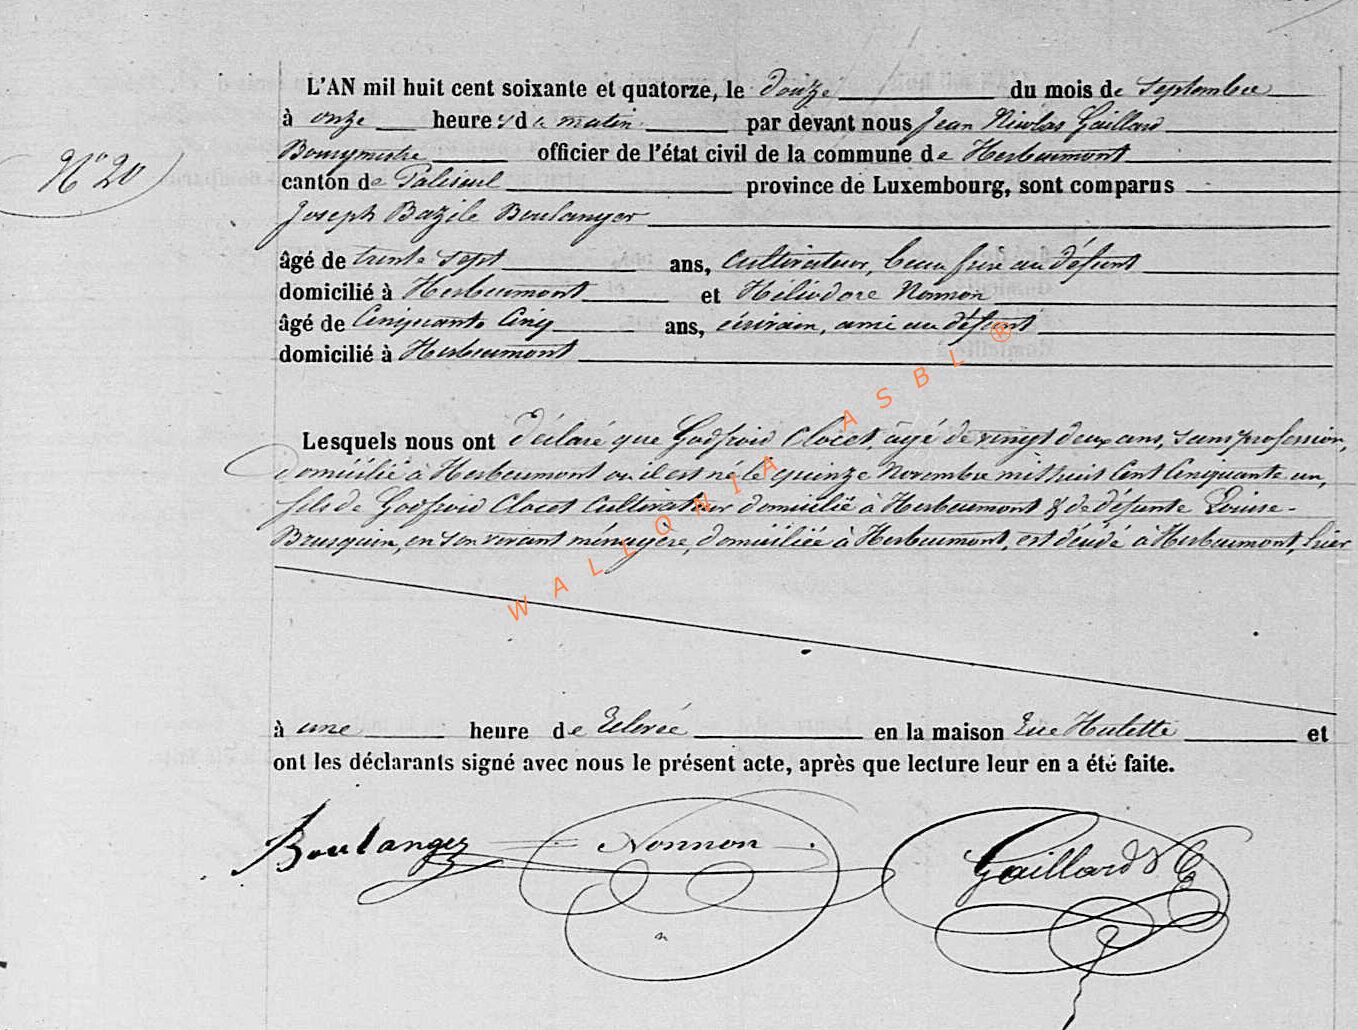 L'AN mil huit cent soixante et quatorze, le douze du mois de septembre
à onze heures du matin par devant nous Jean Nicolas Gaillard
N° 20
Bourgmestre officier de l'état civil de la commune de Herbeumont
canton de Paliseul province de Luxembourg, sont comparus
Joseph Bazile Boulanger
âgé de trente sept ans, cultivateur, beau frère au défunt
domicilié à Herbeumont et Héliodore Nonnon
âgé de Cinquante Cinq ans, écrivain, ami au défunt
domicilié à Herbeumont
Lesquels nous ont déclaré que Godfroid Clocet, âgé de vingt deux ans, sans profession,
domicilié à Herbeumont où il est né le quinze Novembre mil huit Cent Cinquante un,
fils de Godfroid Clocet Cultivateur domicilié à Herbeumont & de défunte Louise-
Brusquin, en son vivant ménagère, domiciliée à Herbeumont, est décédé à Herbeumont, hier
à une heure de relevée en la maison rue Hulette et
ont les déclarants signé avec nous le présent acte, après que lecture leur en a été faite.
Boulanger Nonnon Gaillard
WALLONIA ASBL ®